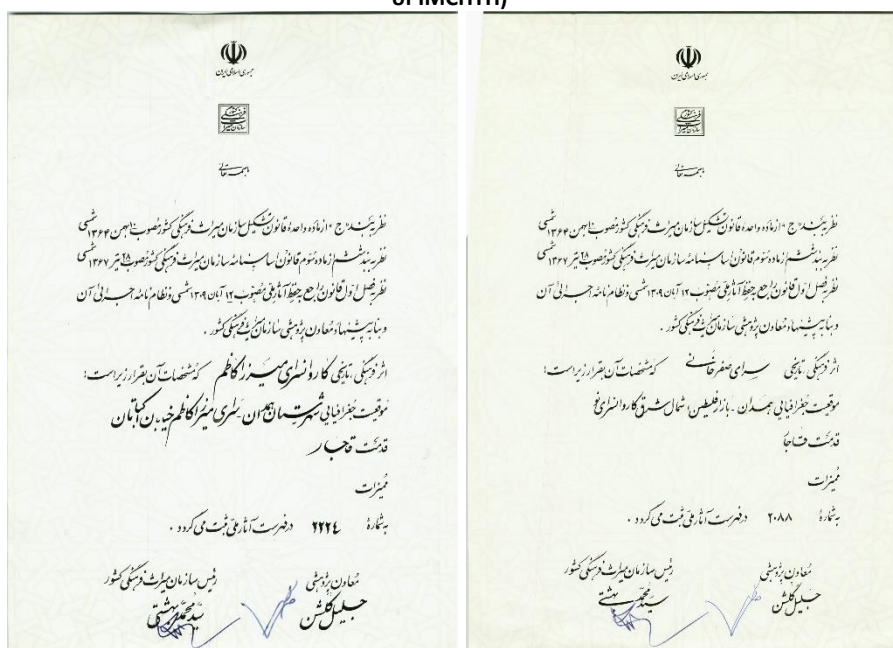 of IMCHTH)
جمهوری اسلامی ایران
سازمان میراث فرهنگی کشور
باسمه تعالی
نظر به بند «ج» از ماده واحدهٔ قانون تشکیل سازمان میراث فرهنگی کشور مصوب ۱۰ بهمن ۱۳۶۴ شمسی
نظر به بند ششم از ماده سوم قانون اساسنامه سازمان میراث فرهنگی کشور مصوب ۲۸ تیر ۱۳۶۷ شمسی
نظر به فصل اول قانون راجع به حفظ آثار ملی مصوب ۱۲ آبان ۱۳۰۹ شمسی و نظام نامه اجرائی آن
و بنا به پیشنهاد معاون پژوهشی سازمان میراث فرهنگی کشور .
اثر فرهنگی ، تاریخی کاروانسرای میرزا کاظم که مشخصات آن بقرار زیر است :
موقیعت جغرافیایی شهرستان همدان - سرای میرزا کاظم خیابان اکباتان
قدمت قاجار
ممیزات
به شمارهٔ ۲۲۲۴ در فهرست آثار ملی ثبت می گردد .
معاون پژوهشی
رئیس سازمان میراث فرهنگی کشور
جلیل گلشن
سید محمد بهشتی
جمهوری اسلامی ایران
سازمان میراث فرهنگی کشور
باسمه تعالی
نظر به بند «ج» از ماده واحدهٔ قانون تشکیل سازمان میراث فرهنگی کشور مصوب ۱۰ بهمن ۱۳۶۴ شمسی
نظر به بند ششم از ماده سوم قانون اساسنامه سازمان میراث فرهنگی کشور مصوب ۲۸ تیر ۱۳۶۷ شمسی
نظر به فصل اول قانون راجع به حفظ آثار ملی مصوب ۱۲ آبان ۱۳۰۹ شمسی و نظام نامه اجرائی آن
و بنا به پیشنهاد معاون پژوهشی سازمان میراث فرهنگی کشور .
اثر فرهنگی ، تاریخی سرای صفر خانی که مشخصات آن بقرار زیر است :
موقیعت جغرافیایی همدان - بازار فلسطین ، شمال شرق کاروانسرای نو
قدمت قاجار
ممیزات
به شمارهٔ ۲۰۸۸ در فهرست آثار ملی ثبت می گردد .
معاون پژوهشی
رئیس سازمان میراث فرهنگی کشور
جلیل گلشن
سید محمد بهشتی